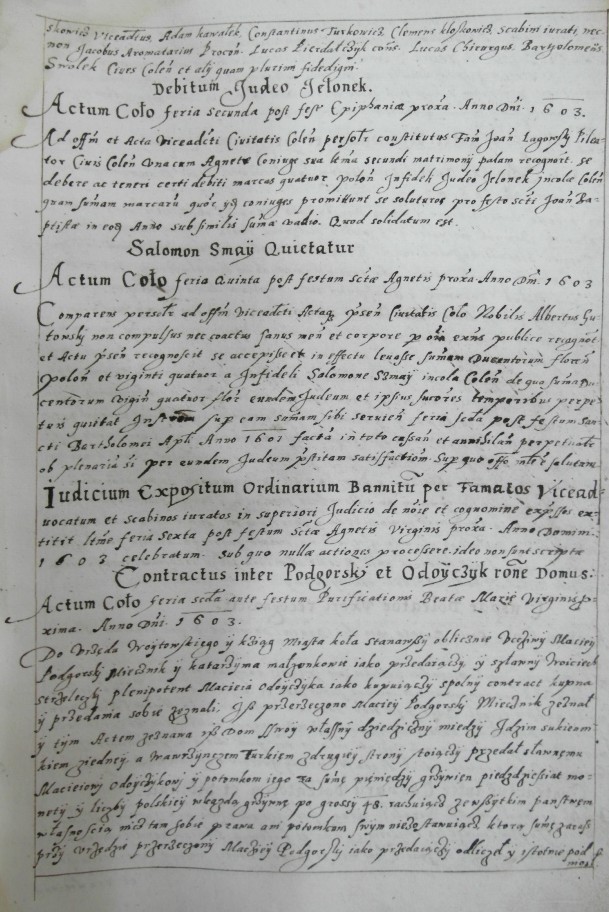 skowicz Viceadtus, Adam kawałek, Constantinus Turkowicz, Clemens kłoskowicz, Scabini iurati, nec
non Jacobus Aromatarius Procon. Lucas Pierdalczyk cons. Lucas Chirurgus, Bartholomeus
Smolek Cives Colen et alij quam plurimi fidedigni
Debitum Judeo Jelonek.
Actum Coło feria secunda post fest Epiphaniæ proxa. Anno Dni. 1603.
Ad offm et Acta Viceadcti Civitatis Colen persolr constitutus Fam Joan Lagowsky
tor Civis Colen unacum Agnete Coniuge sua ltma secundi matrimonij palam recognort. se
debere ac teneri certi debiti marcas quatuor polon Infideli Judeo Jelonek incolæ Colen
quam sumam marcaru quor ijd coniuges promittunt se soluturos pro festo scti Joan Ba-
ptistæ in eod Anno sub similis sumæ vadio. Quod solidatum est.
Salomon Smaij Quietatur
Actum Coło feria Quinta post festum sctæ Agnetis proxa. Anno Dni. 1603
Comparens persolr ad offm Viceadcti Actaq pnsen Civitatis Coło Nobilis Albertus Gu-
towski non compulsus nec coactus sanus men et corpore p oia exns publice recognot
et Actu pnsen recognoscit se accepisse et in effectu levasse sumam Ducentorum floren
polon et viginti quatuor a Infideli Salomone Szmaij incola Colen de qua suma Du
centorum vigin quatuor flor eundem Judeum et ipsius sucores temporibus perpe
tuis quietat Inscr sup eam sumam sibi servien feria scda post festum san
cti Bartholomei Apli Anno 1601 facta in toto cassan et annihilan perpetualr
ob plenariã si per eundem Judeum pstitam satisfaction. Sup quo offo solutum
Iudicium Expositum Ordinarium Bannitũ per Famatos Vicead
vocatum et Scabinos iuratos in superiori Judicio de noie et cognomine expssos ex
titit ltmo feria Sexta post festum Sctæ Agnetis Virginis proxa. Anno Domini
1603 celebratum. Sub quo nullæ actiones processere. ideo non sunt scriptæ
Contractus inter Podgorski et Odoijczyk rone Domus.
Actum Coło feria scda ante festum Purificationis Beatæ Mariæ Virginis p-
xima. Anno Dni. 1603.
Do Vrzędu Woytowskiego y ksiąg Miasta koła stanąwszy oblicznie Vczciwy Maciey
Podgorski Miecznik y katarzyna małzonkowie iako przedaiący, y szlawny Woiciech
strzelecki plenipotent Macieia Odoyczyka iako kupuiący spolny contract kupna
y przedania sobie zeznali. Isz przerzeczono Maciey Podgorski Miecznik zeznał
y tym Actem zeznawa ysz Dom swoy własny dziedziczny miedzy Idzim sukien
kiem ziedney, a Wawrzyncem Turkiem zdrugiey strony stoiący przedał sławnemu
Macieiowi Odoyczykowi y potomkom iego za sumę pieniędzy grzywien pięćdziesiat mo-
nety y liczby polskiey wkazdą grzywnę po groszy 48. rachuiąc ze wszytkim panstwem
własnoscią nicz tam sobie prawa ani potomkom swym niezostawuiąc, ktorą sumę zaras
przy Vrzędzie przerzeczony Maciey Podgorski iako przedaiący odliczeł y istotnie pod